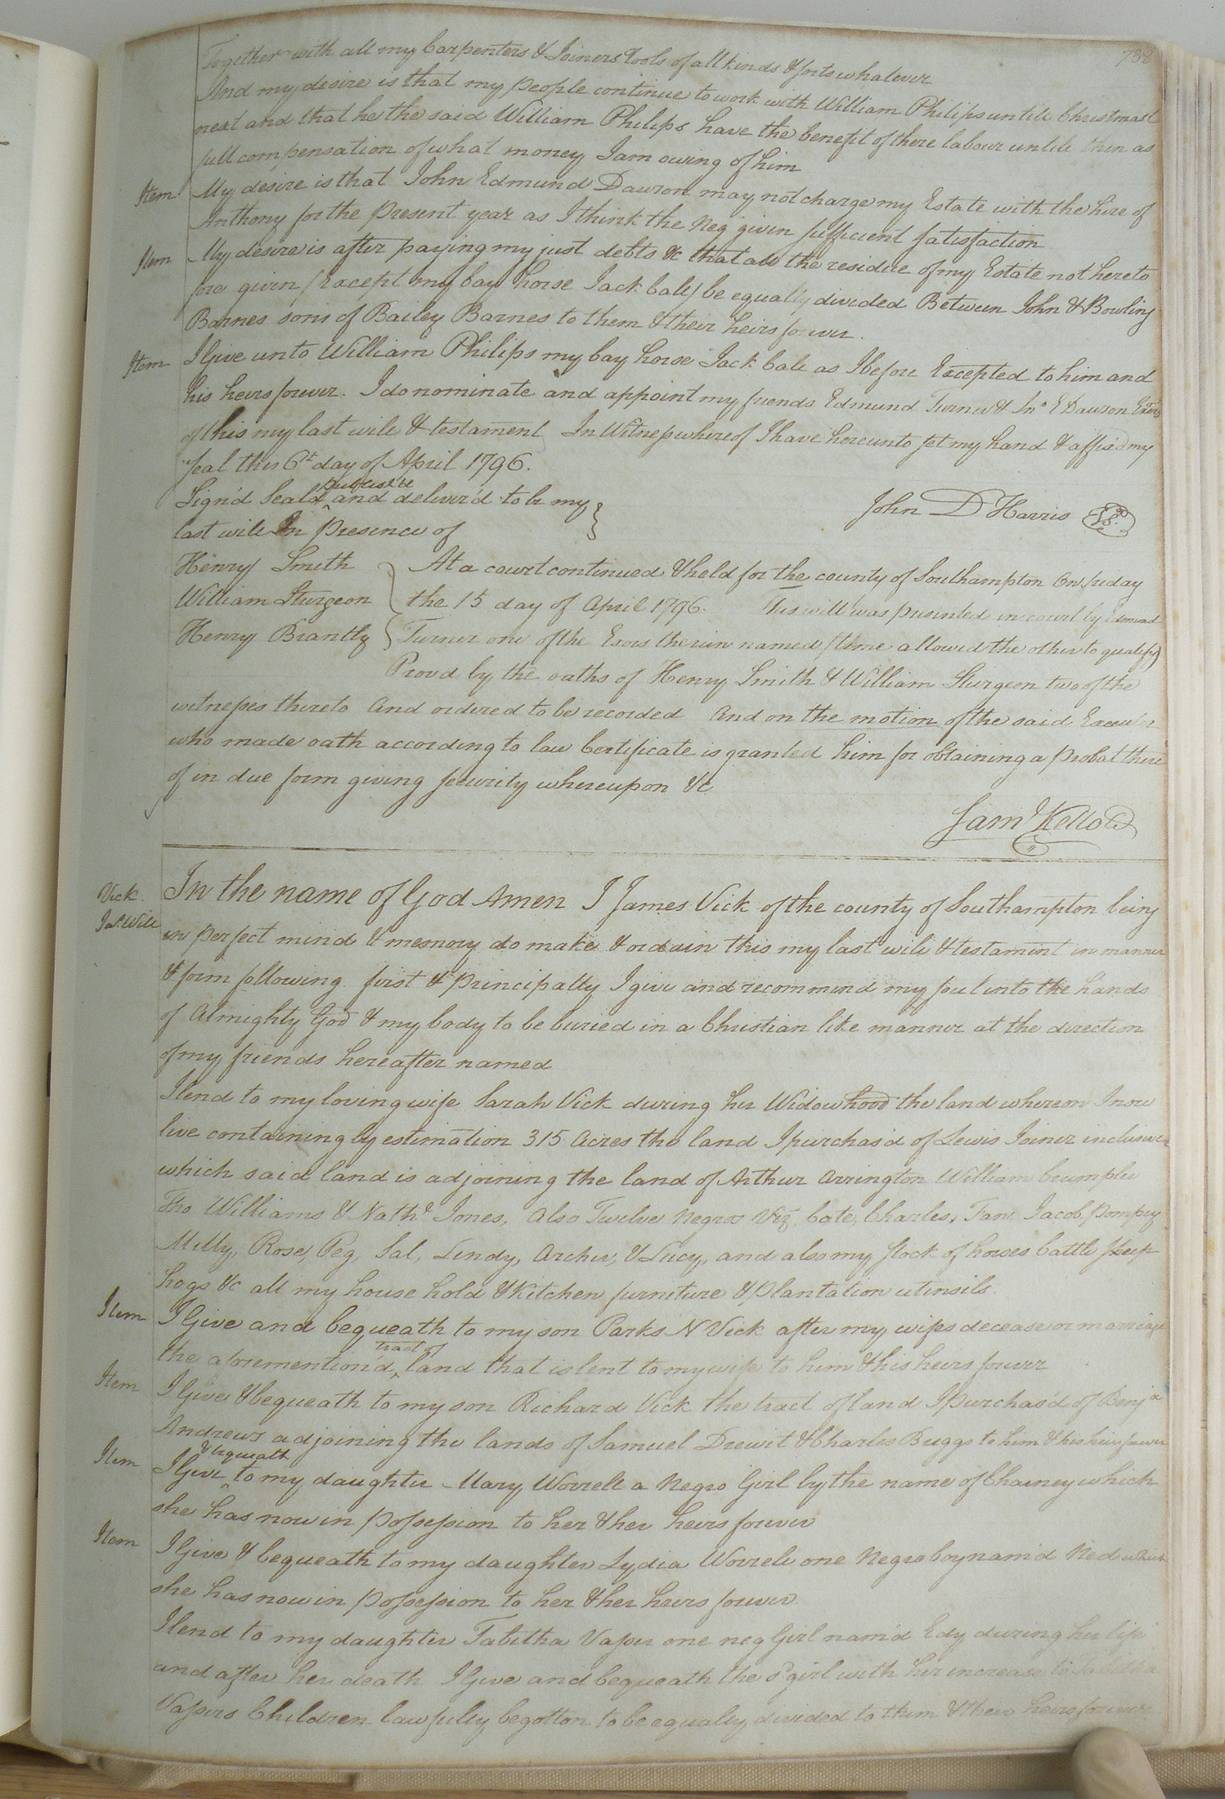 738
Together with all my Carpenters & Joiners tools of all kinds & sorts whatever
And my desire is that my people continue to work with William Philips untill Christmast
next and that he the said William Philips have the benefit of there labour untill then as
full compensation of what money I am owing of him
Item My desire is that John Edmund Dawson may not charge my Estate with the hire of
Anthony for the present year as I think the Neg given sufficient satisfaction
Item My desire is after paying my just debts &c that all the residue of my Estate not hereto
fore given (Except my bay horse Jack Cale) be equally divided Between John & Bowling
Barnes sons of Bailey Barnes to them & their heirs forever.
Item I Give unto William Philips my bay horse Jack Cale as I before Excepted to him and
his heirs forever. I do nominate and appoint my friends Edmund Turner & Jno E Dawson Exors
of this my last will & testament In Witness whereof I have hereunto set my hand & affixed my
seal this 6t day of April 1796.
Sign'd Seal'd publish'd and deliver'd to be my
last will In presence of
John D Harris
Henry Smith At a court continued & held for the county of Southampton On friday
William Sturgeon the 15 day of April 1796. This will was presented in court by Edmund
Henry Brantly Turner one of the Exors therein named (time allowed the other to qualify)
Prov'd by the oaths of Henry Smith & William Sturgeon two of the
witnesses thereto And ordered to be recorded And on the motion of the said Executor
who made oath according to law Certificate is granted him for obtaining a probat there
of in due form giving security whereupon &c
Saml Kello
Vick
Jas. Will
In the name of God Amen I James Vick of the county of Southampton being
in perfect mind & memory do make & ordain this my last will & testament in manner
& form following first & principally I give and recommend my soul into the hands
of Almighty God & my body to be buried in a Christian like manner at the direction
of my friends hereafter named
I lend to my loving wife Sarah Vick during her Widowhood the land whereon I now
live containing by estimation 315 Acres the land I purchas'd of Lewis Joiner inclusive
which said land is adjoining the land of Arthur Arrington William Crumpler
Tho Williams & Nathl Jones, also Twelve Negros Viz Cate, Charles, Fan, Jacob, Pompey
Milly, Rose, Peg, Sal, Lindy, Archer, & Lucy, and also my stock of horses Cattle sheep
hogs &c all my house hold & Kitchen furniture & Plantation utensils.
Item I Give and bequeath to my son Parks N Vick after my wifes decease or marriage
the aforemention'd tract of land that is lent to my wife to him & his heirs forever
Item I Give & bequeath to my son Richard Vick the tract of land I purchas'd of Benja
Andrews adjoining the lands of Samuel Drewit & Charles Briggs to him & his heirs forever
Item I Give & bequeath to my daughter Mary Worrell a Negro Girl by the name of Chainey which
she has now in possession to her & her heirs forever
Item I Give & bequeath to my daughter Lydia Worrell one Negro boy nam'd Ned which
she has now in possession to her & her heirs forever.
I lend to my daughter Tabitha Vasser one neg Girl nam'd Edy during her life
and after her death I Give and bequeath the sd girl with her increase to Tabitha
Vassers Children lawfully begotton to be equally divided to them & their heirs forever